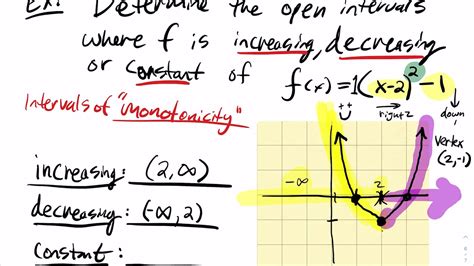 Ex: Determine the open intervals
where f is increasing, decreasing
or constant of f(x)=1(x-2)²-1
right 2
down 1
Intervals of "monotonicity"
vertex
(2,-1)
increasing: (2,∞)
-∞
2
decreasing: (-∞,2)
constant: